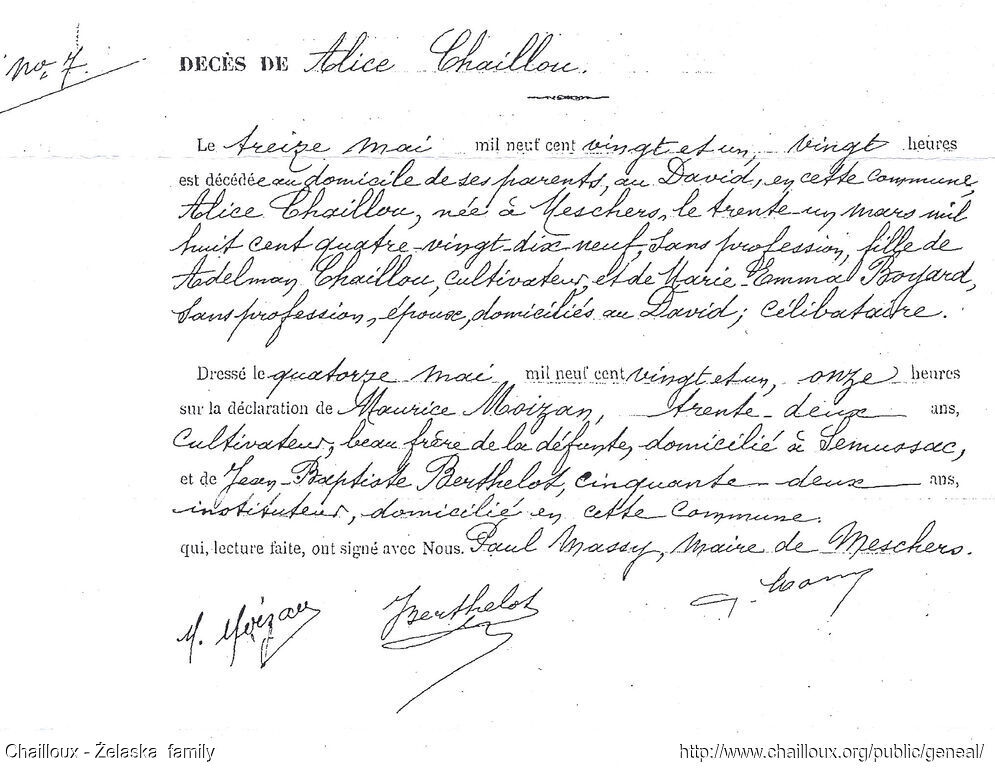 no. 7.
DECÈS DE Alice Chaillou.
Le treize mai mil neuf cent vingt et un, vingt heures
est décédée au domicile de ses parents, au David, en cette commune,
Alice Chaillou, née à Meschers, le trente-un mars mil
huit cent quatre-vingt-dix neuf, sans profession, fille de
Adelman Chaillou, cultivateur, et de Marie-Emma Boyard,
sans profession, époux, domiciliés au David; célibataire.
Dressé le quatorze mai mil neuf cent vingt et un, onze heures
sur la déclaration de Maurice Moizan, trente-deux ans,
cultivateur, beau frère de la défunte, domicilié à Semussac,
et de Jean-Baptiste Berthelot, cinquante-deux ans,
instituteur, domicilié en cette commune.
qui, lecture faite, ont signé avec Nous. Paul Massy, maire de Meschers.
M. Moizan JBerthelot
Chailloux - Żelaska family http://www.chailloux.org/public/geneal/